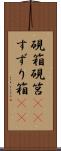 硯箱硯筥
すずり箱